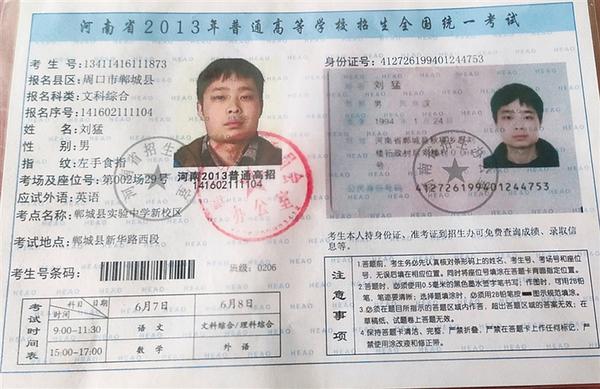 河南省2013年普通高等学校招生全国统一考试
考 生 号:13411416111873
报名县区:周口市郸城县
报名科类:文科综合
报名序号:141602111104
姓 名:刘猛
性 别:男
指 纹:左手食指
考场及座位号:第002场29号
应试外语:英语
考点名称:郸城县实验中学新校区
考试地点:郸城县新华路西段
考生号条码:
班级:0206
河南2013普通高招
141602111104
身份证号:412726199401244753
刘猛
男
1994 1 24
412726199401244753
考生本人持身份证、准考证到招生办可免费查询成绩、录取
信息等。
考试时间表
科目 日期
时间
6月7日
6月8日
9:00-11:30
语 文
文科综合/理科综合
15:00-17:00
数 学
外 语
注意事项
1.答题前,考生务必先认真核对条形码上的姓名、考生号、考场号和座位
号,无误后填在相应位置,同时将座位号填涂在答题卡背面指定位置。
2.答题时,必须使用0.5毫米的黑色墨水签字笔书写;作图时,可用2B铅
笔,笔迹要清晰;选择题填涂时,必须用2B铅笔按 图示规范填涂。
3.必须在题目所指示的答题区域内作答,超出答题区域的答案无效,在
草稿纸、试题卷上答题无效。
4.保持答题卡清洁、完整,严禁折叠,严禁在答题卡上作任何标记,严
禁使用涂改液和修正带。